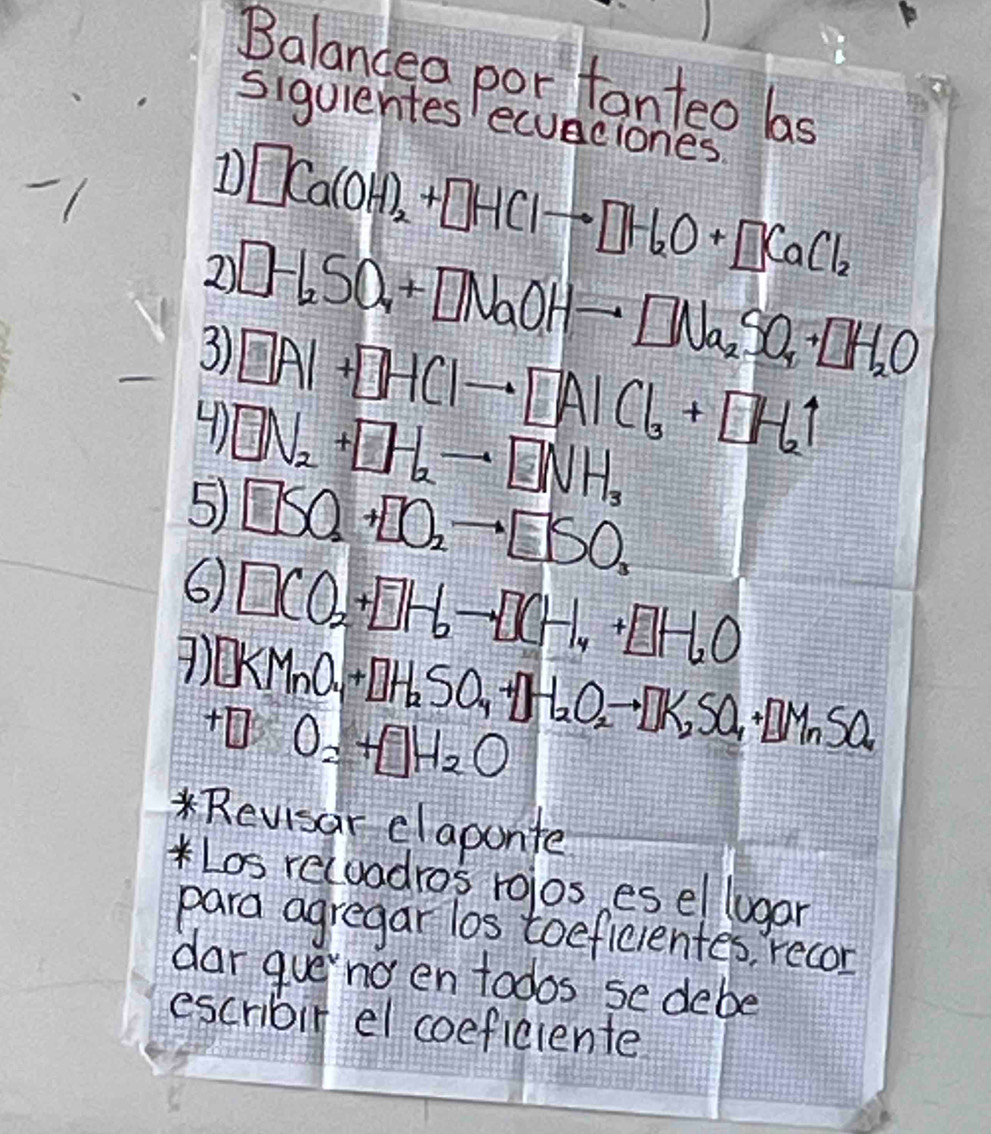 Balancea por tanteo las
siguientes ecuaciones
1) □Ca(OH)₂ + □HCl → □H₂O + □CaCl₂
2) □H₂SO₄ + □NaOH → □Na₂SO₄ + □H₂O
3) □Al + □HCl → □AlCl₃ + □H₂↑
4) □N₂ + □H₂ → □NH₃
5) □SO₂ + □O₂ → □SO₃
6) □CO₂ + □H₂ → □CH₄ + □H₂O
7) □KMnO₄ + □H₂SO₄ + □H₂O₂ → □K₂SO₄ + □MnSO₄
+ □ O₂ + □H₂O
*Revisar el apunte
*Los recuadros rojos, es el lugar
para agregar los coeficientes, recor
dar que no en todos se debe
escribir el coeficiente